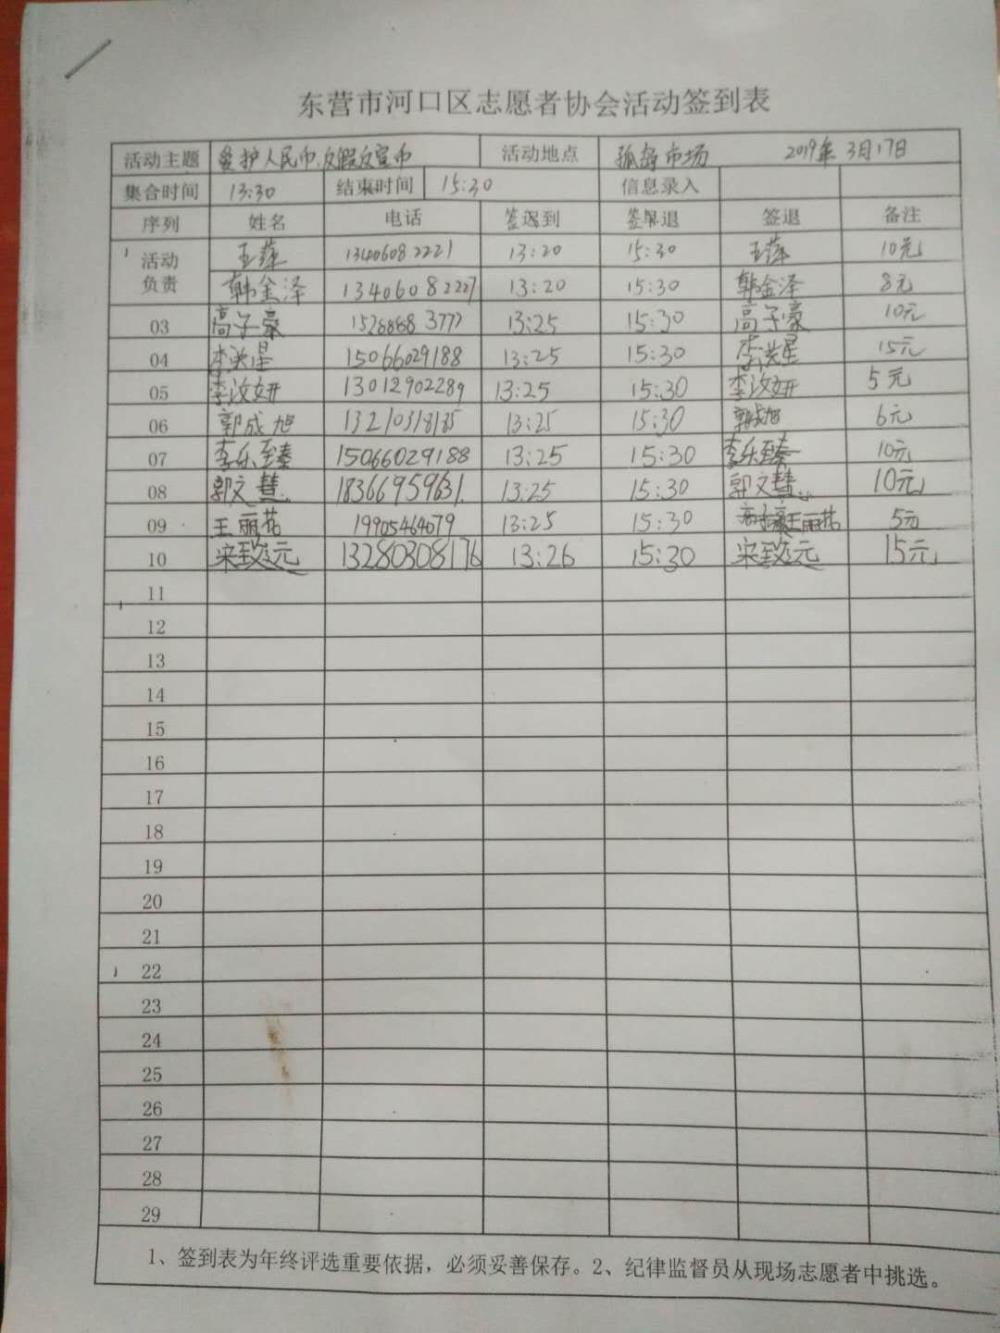 东营市河口区志愿者协会活动签到表
活动主题 爱护人民币.反假反宣币 活动地点 孤岛市场 2019年3月17日
集合时间 13:30 结束时间 15:30 信息录入
序列 姓名 电话 签到 签退 签退 备注
活动负责 王萍 13406082221 13:20 15:30 王萍 10元
韩金泽 13406082227 13:20 15:30 韩金泽 8元
03 高子豪 13:25 15:30 高子豪 10元
04 李洪星 15066029188 13:25 15:30 李洪星 15元
05 李汶妍 13012902289 13:25 15:30 李汶妍 5元
06 郭成旭 13210318185 13:25 15:30 郭成旭 6元
07 李乐至臻 15066029188 13:25 15:30 李乐至臻 10元
08 郭文慧 18366959631 13:25 15:30 郭文慧 10元
09 王丽花 19905464079 13:25 15:30 王丽花 5元
10 宋致元 13280308176 13:26 15:30 宋致元 15元
11
12
13
14
15
16
17
18
19
20
21
22
23
24
25
26
27
28
29
1、签到表为年终评选重要依据，必须妥善保存。2、纪律监督员从现场志愿者中挑选。